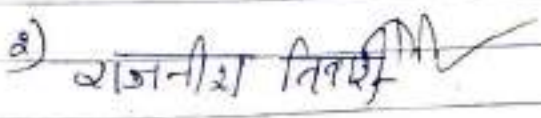 २) राजनीश तिवारी